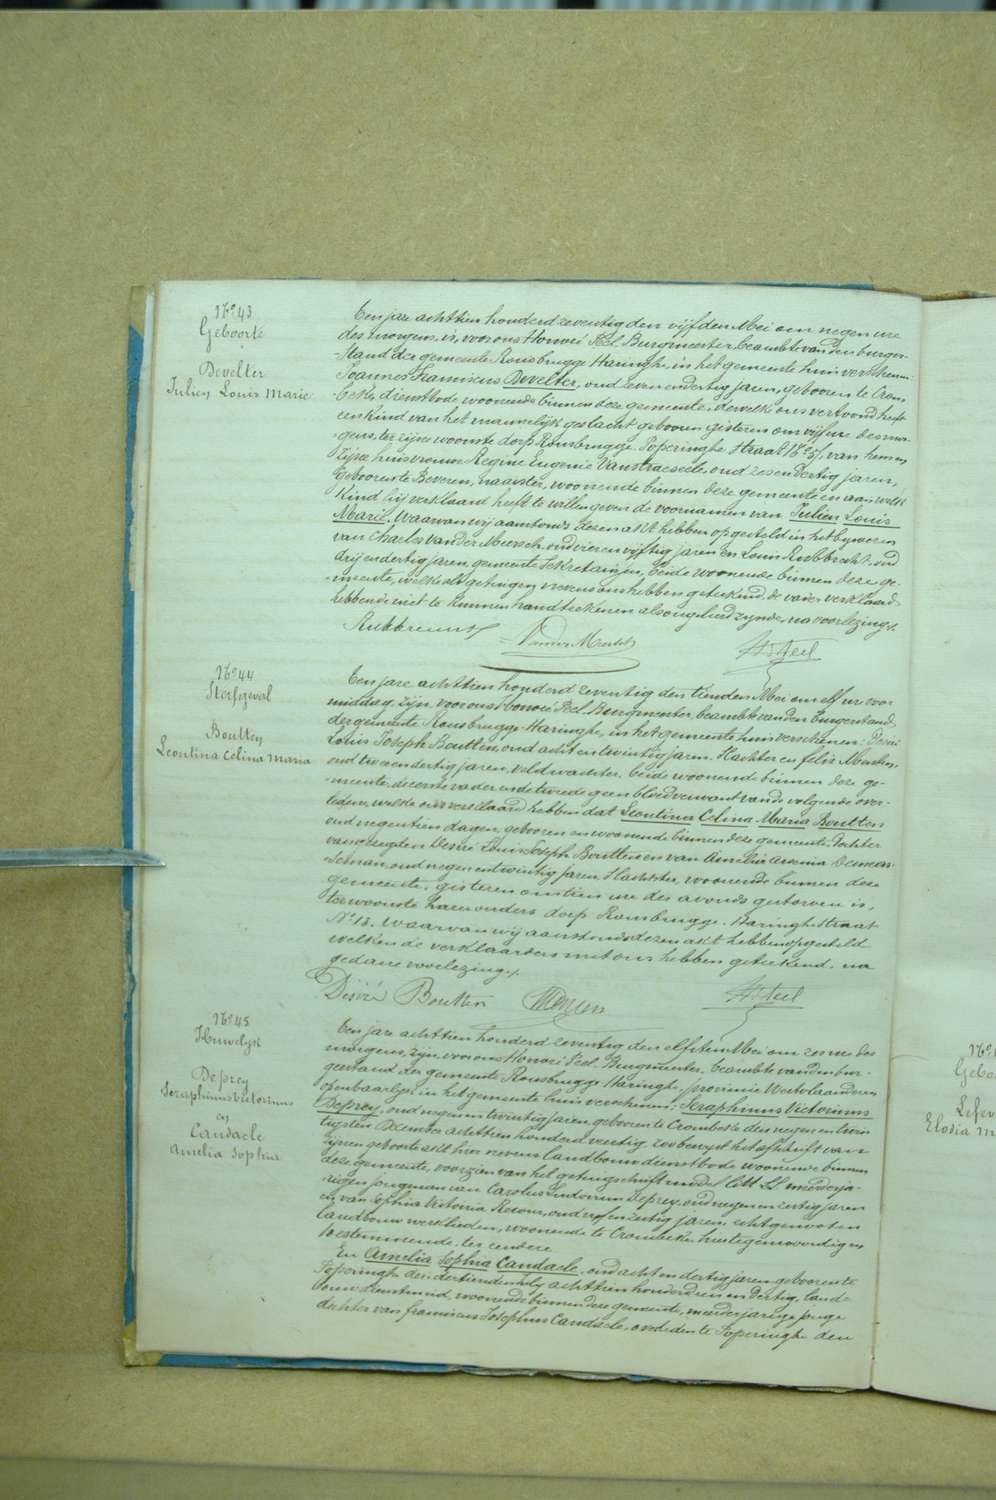 N.° 43
Geboorte
Develter
Julien Louis Marie
Een jaar achttien honderd zeventig den vijfden Mei om negen ure
des morgens, is, voor ons Honoré Bel. Burgmeester beambte van den burger-
stand der gemeente Rousbrugge Haringhe, in het gemeente huis verschenen:
Joannes Franciscus Develter, oud zeven en dertig jaren, geboren te Crom
beke, dienstbode woonende binnen deze gemeente, dewelk ons vertoond heeft
een kind van het mannelijk geslacht geboren gisteren om vijf ure des mor-
gens, ter zijne woonste dorp Rousbrugge Poperinghe straat N.° 51, van hem en
zijne huisvrouw Regine Eugenie Vanstraeseele, oud zes en dertig jaren,
geboren te Beveren, naaister, woonende binnen deze gemeente en aan welk
kind hij verklaard heeft te willen geven de voornamen van Julien Louis
Marie. Waarvan wij aanstonds dezen akt hebben opgesteld in het bijwezen
van Charles Van Der Meersch, oud vier en vijftig jaren en Louis Rubbrecht, oud
drij en dertig jaren, gemeente sekretarijen, beide woonende binnen deze ge-
meente, welke als getuigen nevens ons hebben geteekend, de vader verklaard
hebbende niet te kunnen handteekenen als ongeleerd zijnde, na voorlezing.
N.° 44
Sterfgeval
Boutten
Leontina Celina Maria
Een jare achttien honderd zeventig den tienden Mei om elf ure voor
middag, zijn, voor ons Honoré Bel. Burgmeester, beambte van den burgerstand
der gemeente Rousbrugge-Haringhe, in het gemeente huis verschenen: Desiré
Louis Joseph Boutten, oud acht en twintig jaren, Hachter en felix Menten,
oud twee en dertig jaren, veldwachter, beide woonende binnen deze ge-
meente, de eerste vader en de tweede geen bloedverwant van de volgende over-
ledene, welke ons verklaard hebben dat Leontina Celina Maria Boutten
oud negentien dagen, geboren en woonende binnen deze gemeente, dochter
van gezegden Desiré Louis Joseph Boutten en van Amelia
oud negen en twintig jaren, Hachter, woonende binnen deze
gemeente, gisteren om tien ure des avonds gestorven is,
ter woonste harer ouders dorp Rousbrugge. Haringhe straat
N.° 13. Waarvan wij aanstonds dezen akt hebben opgesteld
welken de verklaarders met ons hebben geteekend. na
gedane voorlezing.
Désiré Boutten
N.° 45
Huwelijk
Deprey
Seraphinus Victorinus
en
Candaele
Amelia Sophia
Een jare achttien honderd zeventig den elfsten Mei om zes ure des
morgens, zijn, voor ons Honoré Bel. Burgmeester, beambte van den bur-
gerstand der gemeente Rousbrugge Haringhe, provincie Westvlaanderen
openbaarlijk in het gemeente huis verschenen: Seraphinus Victorinus
Deprey, oud negen en twintig jaren, geboren te Crombeke den negen en twin
tigsten December achttien honderd veertig, zoo bewyst het afschrift van
zijnen geboorte akt hier nevens landbouw dienstbode woonende binnen
deze gemeente, voorzien van het getuigschrift model meerderja-
rigen jongman van Carolus Ludovicus Deprey, oud negen en zestig jaren
en van Sophia Victoria oud vijf en zestig jaren, echtgenooten
landbouw werklieden, woonende te Crombeke, hier tegenwoordig en
toestemmende. ter eendere
En Amelia Sophia Candaele, oud acht en dertig jaren geboren te
Poperinghe den dertienden July achttien honderd een en dertig, land-
bouw dienstmeid, woonende binnen deze gemeente, meerderjarige jonge
dochter van franciscus Josephus Candaele, overleden te Poperinghe den